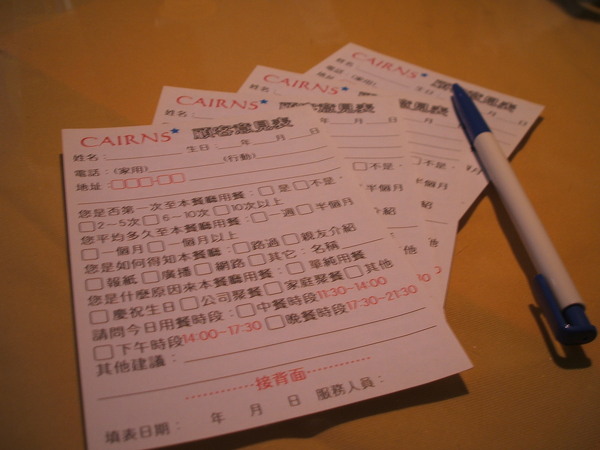 CAIRNS 顧客意見表
姓名： 生日： 年 月 日
電話：(家用) (行動)
地址：□□□-□□
您是否第一次至本餐廳用餐：□是□不是，
□2～5次□6～10次□10次以上
您平均多久至本餐廳用餐：□一週□半個月
□一個月□一個月以上
您是如何得知本餐廳：□路過□親友介紹
□報紙□廣播□網路□其它：名稱
您是什麼原因來本餐廳用餐：□單純用餐
□慶祝生日□公司聚餐□家庭聚餐□其他
請問今日用餐時段：□中餐時段11:30~14:00
□下午時段14:00~17:30□晚餐時段17:30~21:30
其他建議：
接背面
填表日期： 年 月 日 服務人員：
CAIRNS 顧客意見表
姓名：
年 月 日
不是，
半個月
介紹
他
CAIRNS
姓名：
意見表
月 日
□不是，
半個月
紹
CAIRNS
姓名：
電話：(家用)
地址
生日